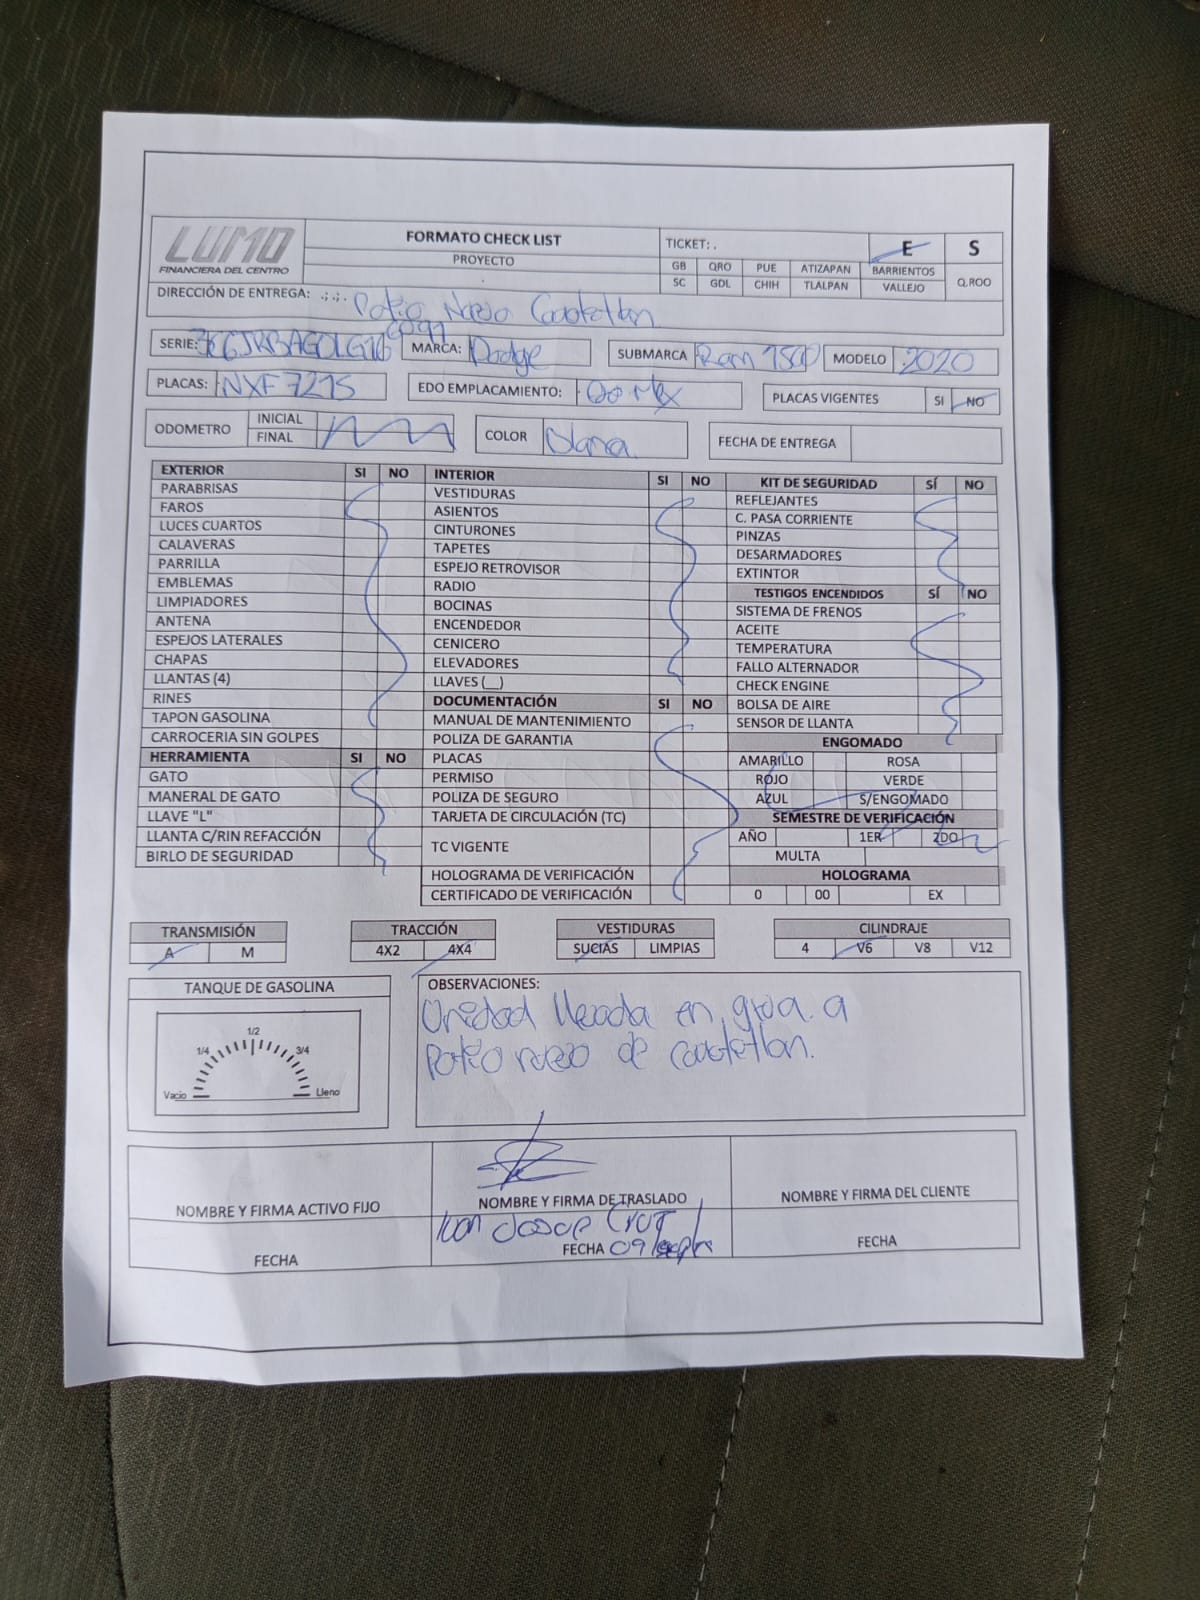 LUMO
FINANCIERA DEL CENTRO
FORMATO CHECK LIST
PROYECTO
TICKET: .
E
S
GB QRO PUE ATIZAPAN BARRIENTOS
SC GDL CHIH TLALPAN VALLEJO
Q.ROO
DIRECCIÓN DE ENTREGA: .;.;. Patio Nuevo Cuautetlan
SERIE:
MARCA: Dodge
SUBMARCA Ram 1500
MODELO .2020
PLACAS: NXF7215
EDO EMPLACAMIENTO: .
PLACAS VIGENTES SI NO
ODOMETRO INICIAL
FINAL
COLOR
FECHA DE ENTREGA
EXTERIOR SI NO
PARABRISAS
FAROS
LUCES CUARTOS
CALAVERAS
PARRILLA
EMBLEMAS
LIMPIADORES
ANTENA
ESPEJOS LATERALES
CHAPAS
LLANTAS (4)
RINES
TAPON GASOLINA
CARROCERIA SIN GOLPES
HERRAMIENTA SI NO
GATO
MANERAL DE GATO
LLAVE "L"
LLANTA C/RIN REFACCIÓN
BIRLO DE SEGURIDAD
INTERIOR SI NO
VESTIDURAS
ASIENTOS
CINTURONES
TAPETES
ESPEJO RETROVISOR
RADIO
BOCINAS
ENCENDEDOR
CENICERO
ELEVADORES
LLAVES (__)
DOCUMENTACIÓN SI NO
MANUAL DE MANTENIMIENTO
POLIZA DE GARANTIA
PLACAS
PERMISO
POLIZA DE SEGURO
TARJETA DE CIRCULACIÓN (TC)
TC VIGENTE
HOLOGRAMA DE VERIFICACIÓN
CERTIFICADO DE VERIFICACIÓN
KIT DE SEGURIDAD SÍ NO
REFLEJANTES
C. PASA CORRIENTE
PINZAS
DESARMADORES
EXTINTOR
TESTIGOS ENCENDIDOS SÍ NO
SISTEMA DE FRENOS
ACEITE
TEMPERATURA
FALLO ALTERNADOR
CHECK ENGINE
BOLSA DE AIRE
SENSOR DE LLANTA
ENGOMADO
AMARILLO ROSA
ROJO VERDE
AZUL S/ENGOMADO
SEMESTRE DE VERIFICACIÓN
AÑO 1ER 2DO
MULTA
HOLOGRAMA
0 00 EX
TRANSMISIÓN
A M
TRACCIÓN
4X2 4X4
VESTIDURAS
SUCIAS LIMPIAS
CILINDRAJE
4 V6 V8 V12
TANQUE DE GASOLINA
1/2
1/4 3/4
Vacio Lleno
OBSERVACIONES:
Unidad llevada en grua a
Patio nuevo de Cuautetlan.
NOMBRE Y FIRMA ACTIVO FIJO
NOMBRE Y FIRMA DE TRASLADO
NOMBRE Y FIRMA DEL CLIENTE
FECHA
FECHA 09
FECHA